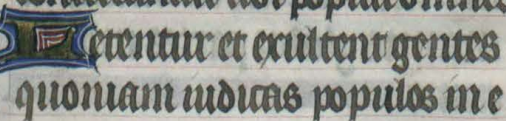 Letentur et exultent gentes
quoniam iudicas populos in e